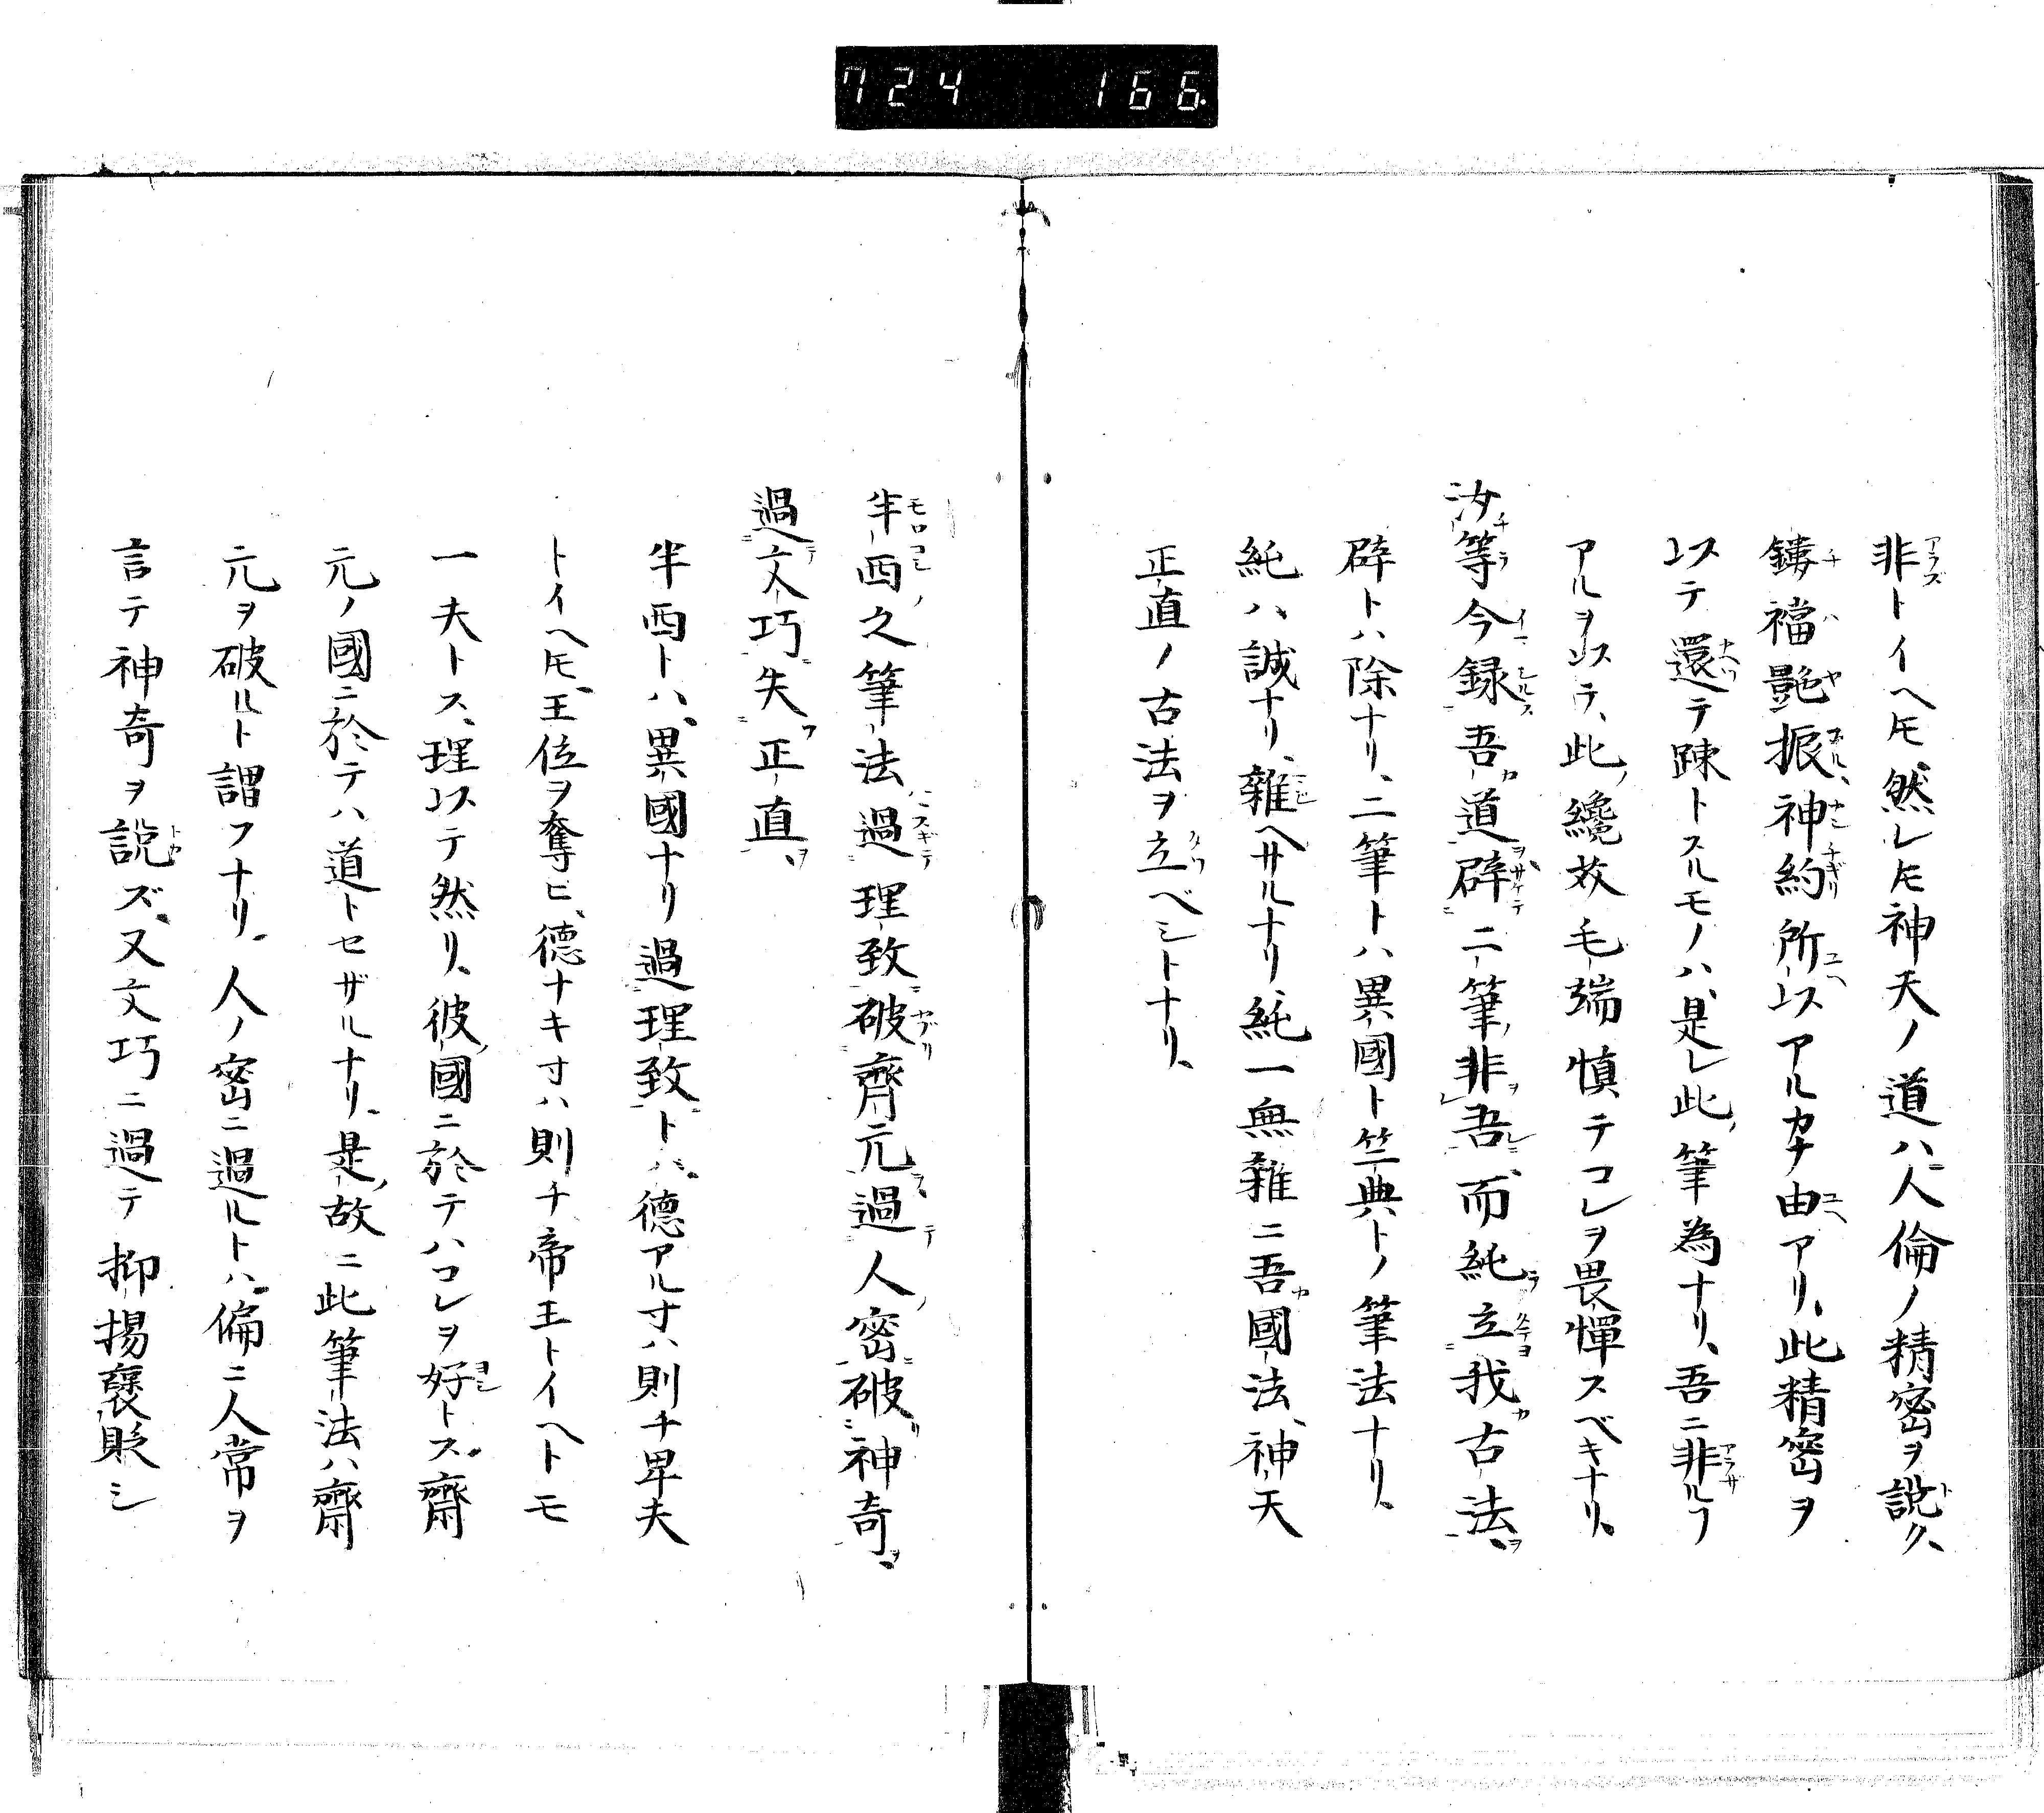 724 166
非トイヘ𪜈、然レ𪜈神天ノ道ハ人倫ノ精密ヲ説ク、
鏤襠艶振、神約所以アルカナ由アリ、此精密ヲ
以テ還テ踈トスルモノハ、是レ此ノ筆為ナリ、吾ニ非ルヿ
アルヲ以テ、此ノ纔㚑毛端慎テコレヲ畏憚スベキナリ、
汝等今録吾道辟二筆非吾而純立我古法、
辟トハ除ナリ、二筆トハ異國ト竺典トノ筆法ナリ、
純ハ誠ナリ、雜ヘサルナリ、純一無雜ニ吾カ國法、神天
正直ノ古法ヲ立ベシトナリ、
半西之筆法過理致破齊元過人密破神奇
過文巧失正直
半西トハ、異國ナリ過理致トハ、德アル寸ハ則チ卑夫
トイヘ𪜈、王位ヲ奪ヒ、德ナキ寸ハ則チ帝王トイヘトモ
一夫トス、理以テ然リ、彼ノ國ニ於テハコレヲ好トス、齊
元ノ國ニ於テハ道トセザルナリ、是ノ故ニ此筆法ハ齊
元ヲ破ルト謂フナリ、人ノ密ニ過ルトハ、偏ニ人常ヲ
言テ神奇ヲ説ズ、又文巧ニ過テ抑揚襃貶シ